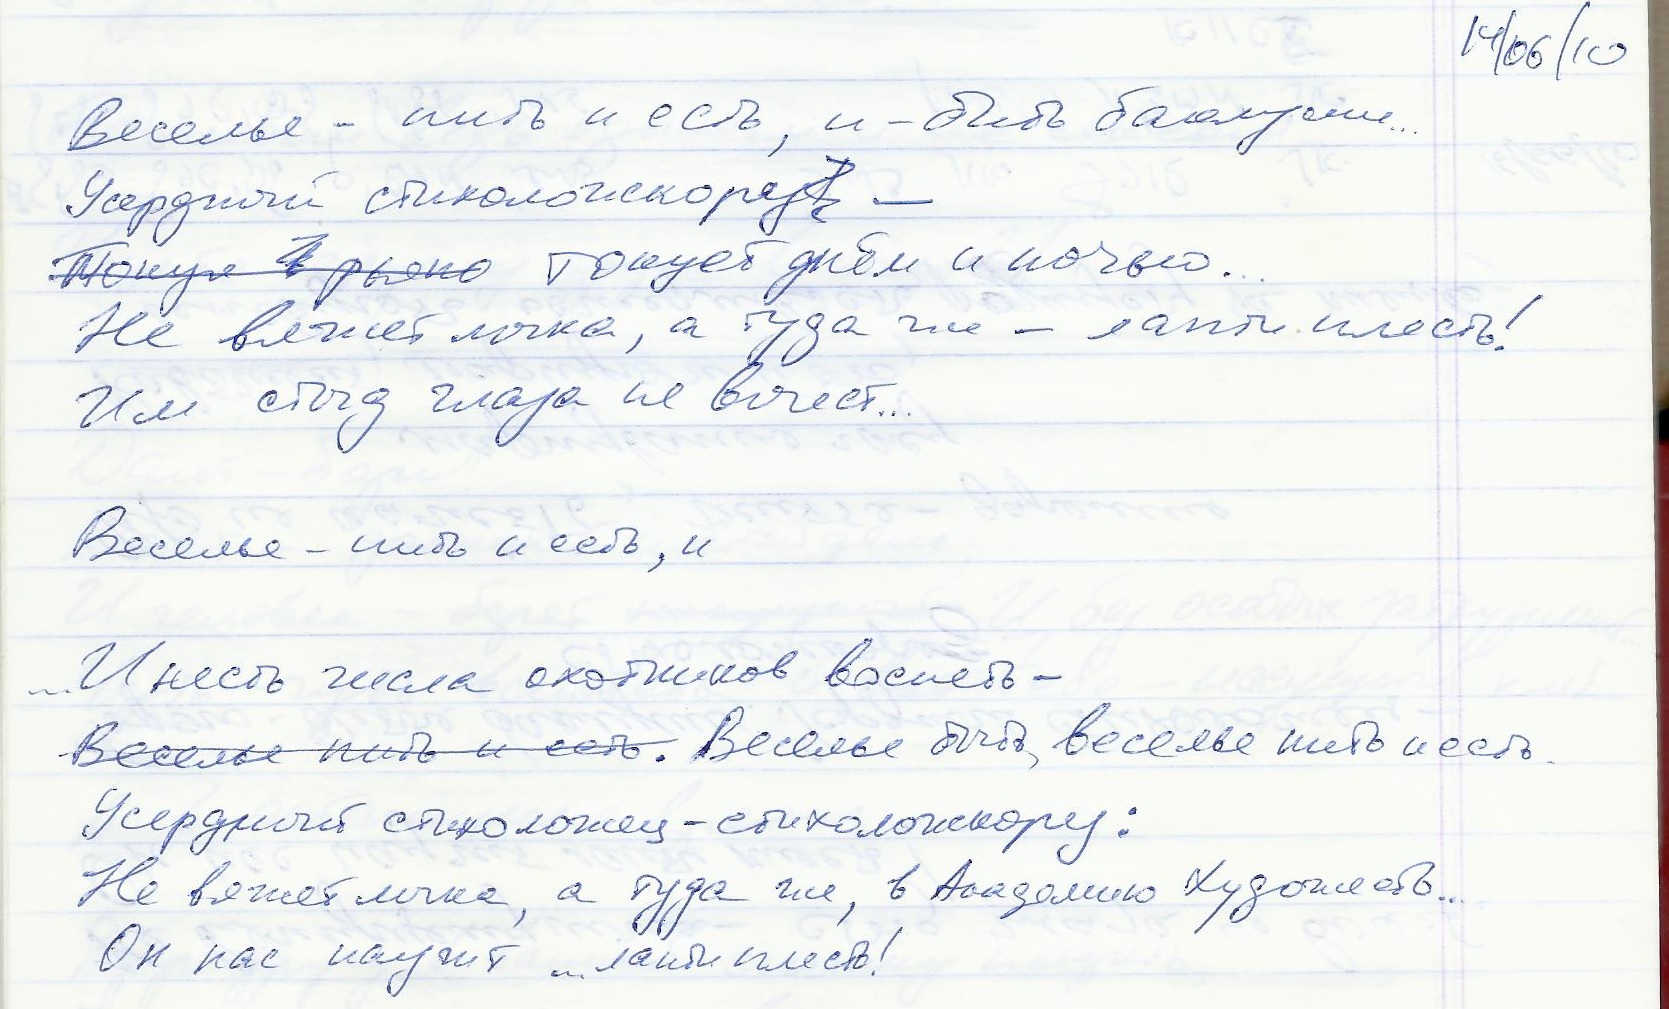 14/06/10
Веселье - пить и есть, и - бить баклуши...
Усердный стихоложскорез —
Токуя рьяно токует днём и ночью...
Не вяжет лычка, а туда же - лапти плесть!
Им стыд глаза не выест...
Веселье - пить и есть, и
...И несть числа охотников воспеть -
Веселье пить и есть. Веселье быть, веселье пить и есть.
Усердный стихоложец - стихоложкорез:
Не вяжет лычка, а туда же, в Академию Художеств...
Он нас научит ...лапти плесть!